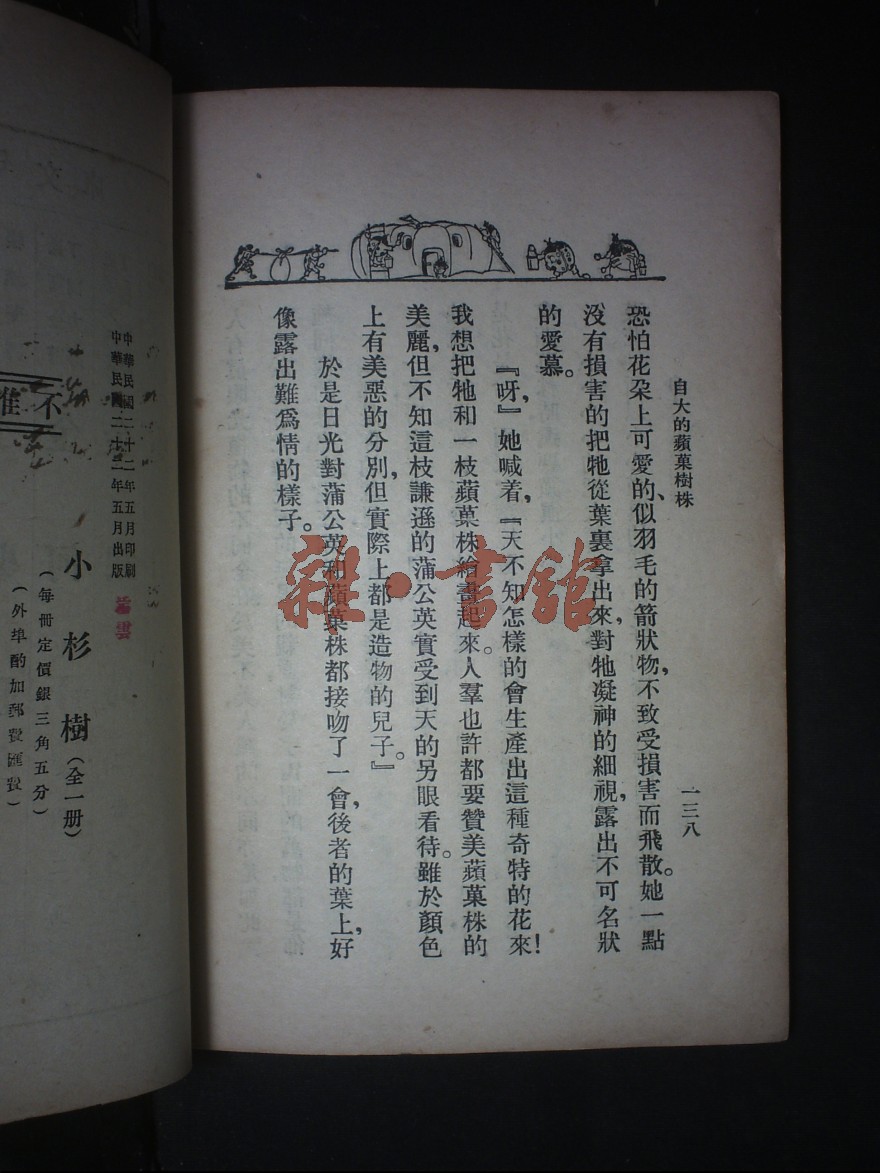 自大的蘋菓樹株
一三八
恐怕花朶上可愛的、似羽毛的箭狀物，不致受損害而飛散。她一點
沒有損害的把牠從葉裏拿出來，對牠凝神的細視，露出不可名狀
的愛慕。
『呀，』她喊着，『天不知怎樣的會生產出這種奇特的花來！
我想把牠和一枝蘋菓株給畫起來。人羣也許都要贊美蘋菓株的
美麗，但不知這枝謙遜的蒲公英實受到天的另眼看待。雖於顏色
上有美惡的分別，但實際上都是造物的兒子。』
於是日光對蒲公英和蘋菓株都接吻了一會，後者的葉上，好
像露出難爲情的樣子。
雜·書館
中華民國二十二年五月印刷
中華民國二十二年五月出版
小杉樹（全一册）
（每冊定價銀三角五分）
（外埠酌加郵費匯費）
不准